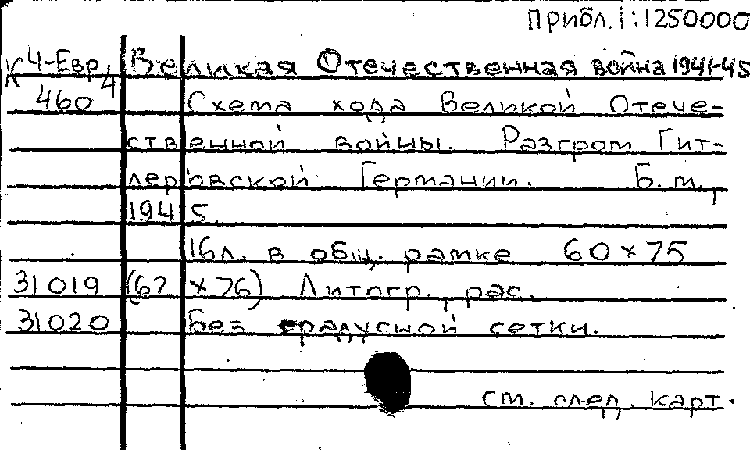 Прибл. 1:1250000
К 4-Евр/4 Великая Отечественная война 1941-45
460 Схема хода Великой Отече-
ственной войны. Разгром Гит-
леровской Германии. Б.м.,
1945.
16л. в общ. рамке 60×75
31019 (67×76) Литогр., рас.
31020 Без градусной сетки.
см. след. карт.